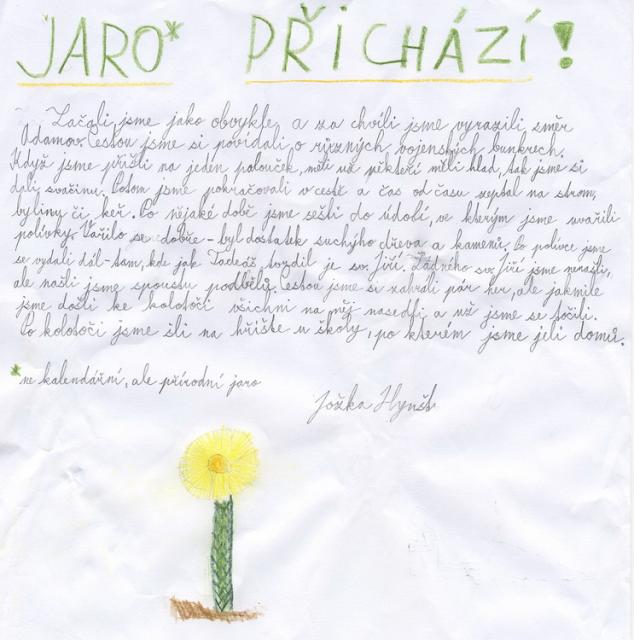 JARO* PŘICHÁZÍ!
Začali jsme jako obvykle, a za chvíli jsme vyrazili směr
Adamov. Cestou jsme si povídali o různých vojenských bunkrech.
Když jsme přišli na jeden palouček, měli už někteří měli hlad, tak jsme si
dali svačinu. Potom jsme pokračovali v cestě a čas od času zeptal na strom,
byliny či keř. Po nějaké době jsme sešli do údolí, ve kterým jsme uvařili
polívky. Vařilo se dobře - byl dostatek suchýho dřeva a kamení. Po polívce jsme
se vydali dál - tam, kde jak Tadeáš tvrdil je sv. Jiří. Žádného sv. Jiří jsme nenašli,
ale našli jsme spoustu podbělů. Cestou jsme si zahráli pár her, ale jakmile
jsme došli ke kolotoči všichni na něj nasedli a už jsme se točili.
Po kolotoči jsme šli na hřiště u školy, po kterém jsme jeli domů.
*ne kalendářní, ale přírodní jaro
Jožka Hynšt